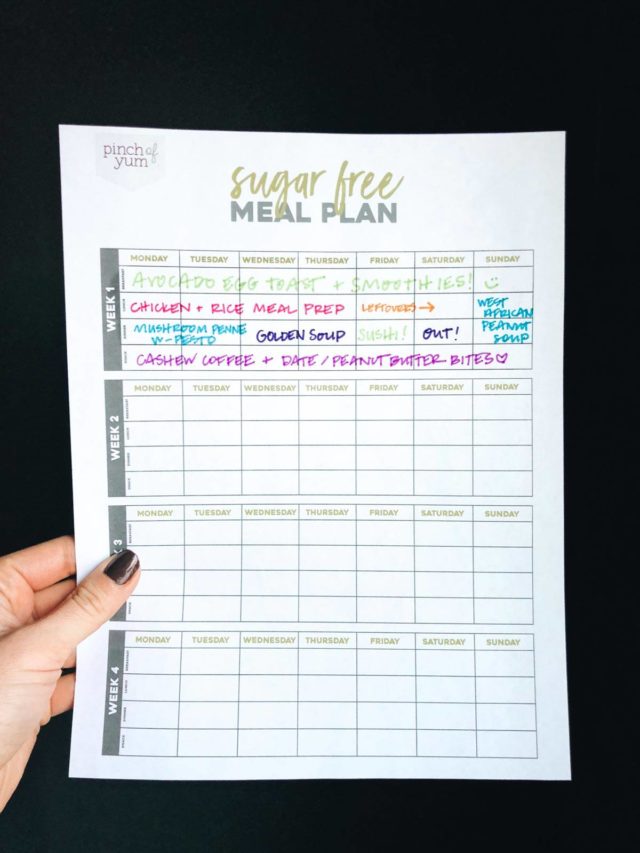 pinch of
yum
sugar free
MEAL PLAN
MONDAY TUESDAY WEDNESDAY THURSDAY FRIDAY SATURDAY SUNDAY
WEEK 1
BREAKFAST
AVOCADO EGG TOAST + SMOOTHIES!
LUNCH
CHICKEN + RICE MEAL PREP LEFTOVERS → WEST AFRICAN PEANUT SOUP
DINNER
MUSHROOM PENNE W-PESTO GOLDEN SOUP SUSHI! OUT!
SNACK
CASHEW COFFEE + DATE/PEANUT BUTTER BITES ♡
WEEK 2
MONDAY TUESDAY WEDNESDAY THURSDAY FRIDAY SATURDAY SUNDAY
BREAKFAST
LUNCH
DINNER
SNACK
3
MONDAY TUESDAY WEDNESDAY THURSDAY FRIDAY SATURDAY SUNDAY
BREAKFAST
LUNCH
DINNER
SNACK
WEEK 4
MONDAY TUESDAY WEDNESDAY THURSDAY FRIDAY SATURDAY SUNDAY
BREAKFAST
LUNCH
DINNER
SNACK